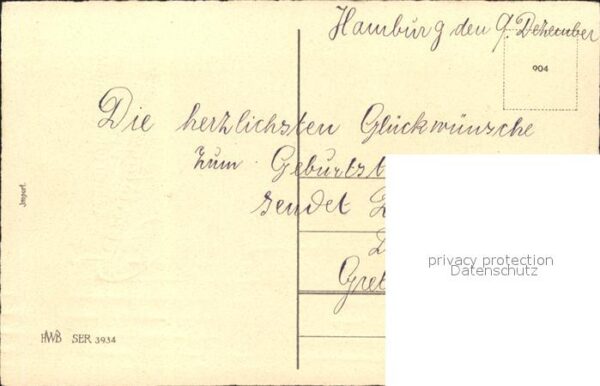 Hamburg den 9. Dezember
904
Die herzlichsten Glückwünsche
zum Geburtst
sendet
Gret
Import.
HWB SER 3934
privacy protection
Datenschutz